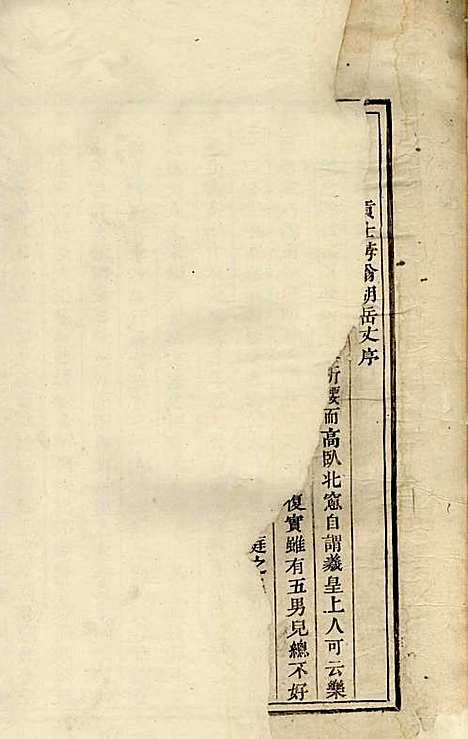 士翁胡岳丈序
腰而高臥北窓自謂羲皇上人可云樂
復實雖有五男兒總不好
廷之